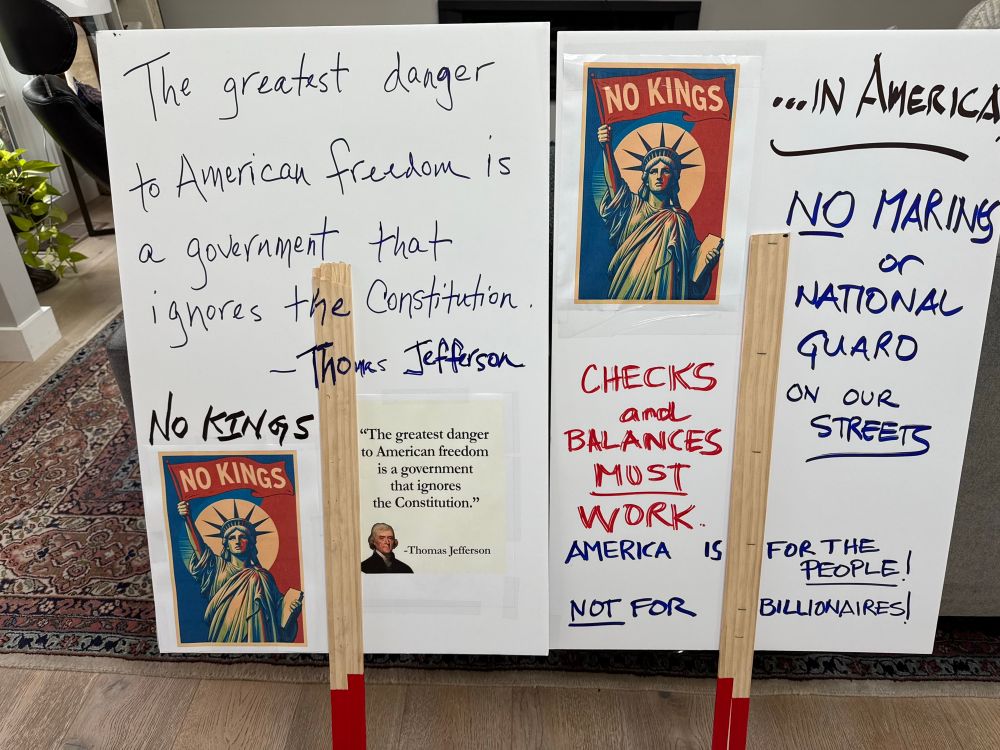 The greatest danger
to American freedom is
a government that
ignores the Constitution.
- Thomas Jefferson
NO KINGS
NO KINGS
“The greatest danger
to American freedom
is a government
that ignores
the Constitution.”
-Thomas Jefferson
NO KINGS
...IN AMERICA
NO MARINES
or
NATIONAL
GUARD
ON OUR
STREETS
CHECKS
and
BALANCES
MUST
WORK.
AMERICA IS FOR THE
PEOPLE!
NOT FOR BILLIONAIRES!